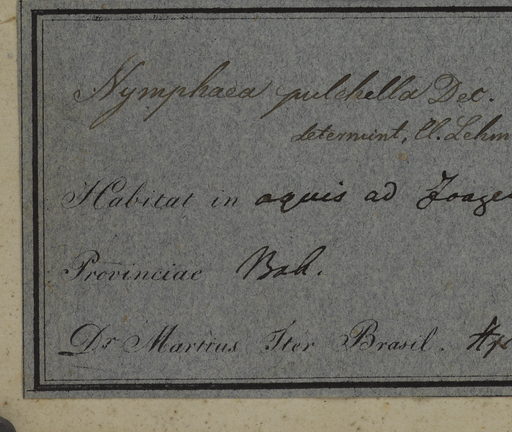 Nymphaea pulchella Dec.
determint. Cl. Lehm
Habitat in aquis ad Joaze
Provinciae Bah.
Dr Martius Iter Brasil.